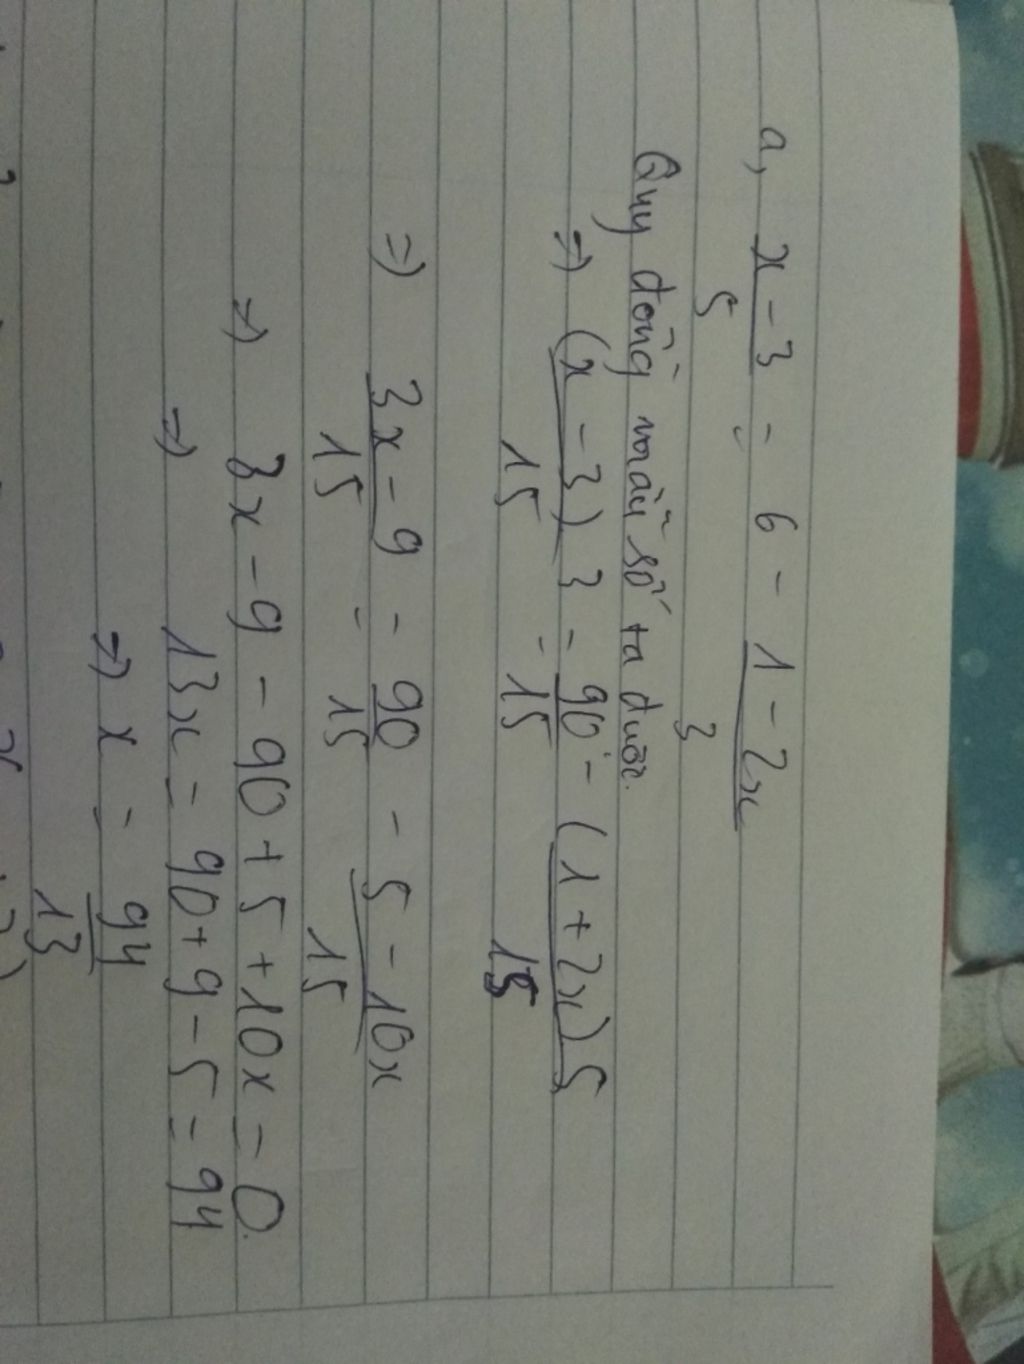 a, x - 3 = 6 - 1 - 2x
5 3
Quy đồng mẫu số ta được.
=> (x - 3) 3 = 90 - (1 + 2x) 5
15 15 15
=> 3x - 9 = 90 - 5 - 10x
15 15 15
=> 3x - 9 - 90 + 5 + 10x = 0.
=> 13x = 90 + 9 - 5 = 94
=> x = 94
13